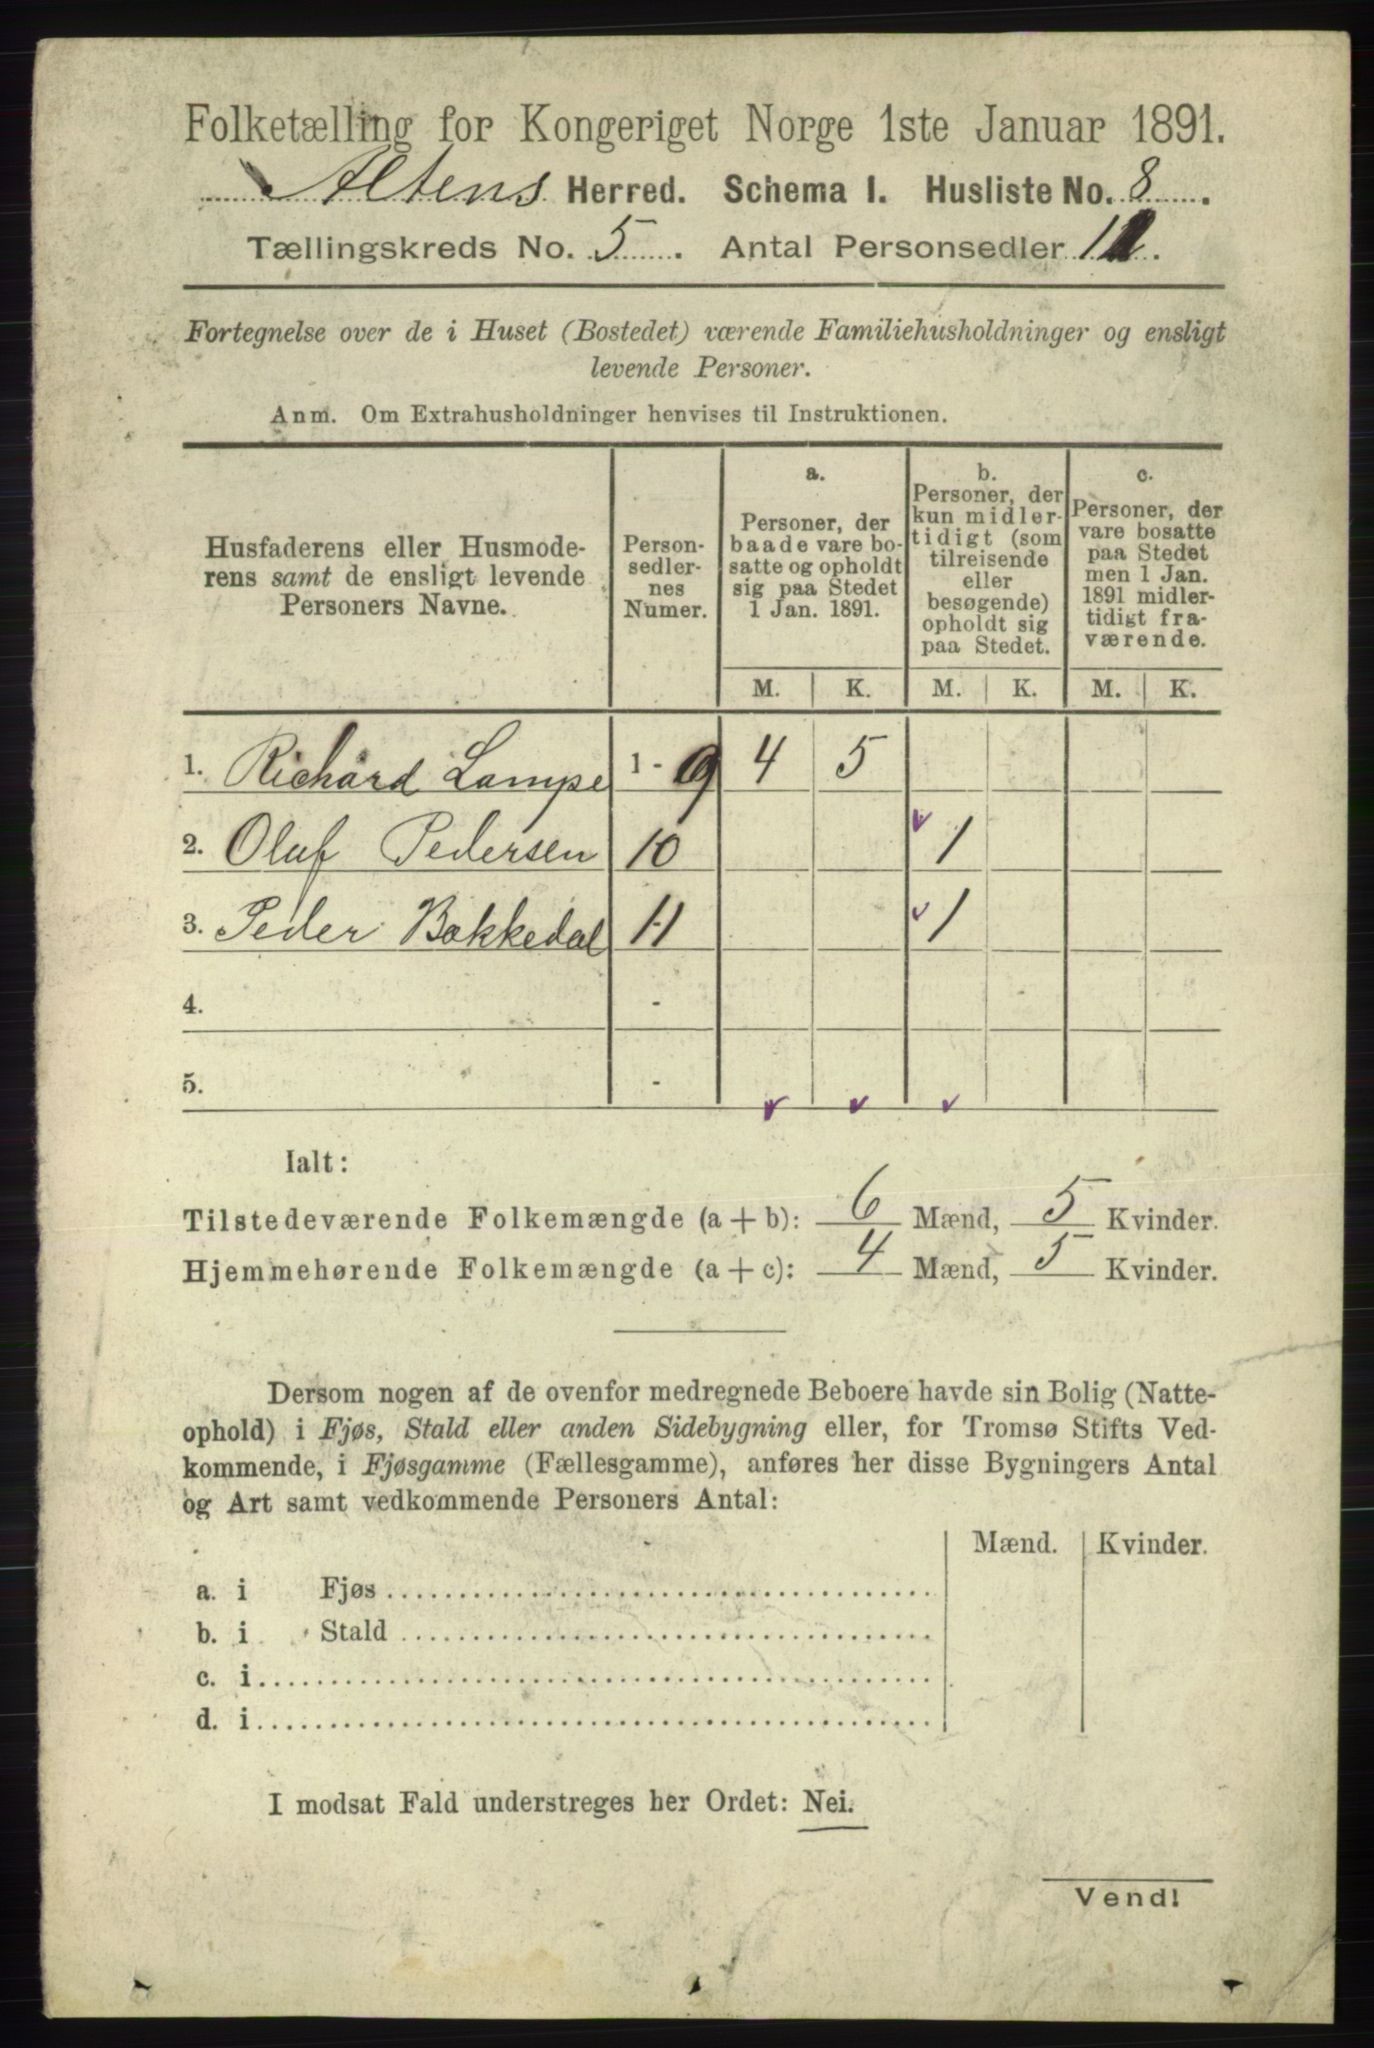 Folketælling for Kongeriget Norge 1ste Januar 1891.
Altens Herred. Schema I. Husliste No. 8.
Tællingskreds No. 5. Antal Personsedler 11.
Fortegnelse over de i Huset (Bostedet) værende Familiehusholdninger og ensligt
levende Personer.
Anm. Om Extrahusholdninger henvises til Instruktionen.
Husfaderens eller Husmode-
rens samt de ensligt levende
Personers Navne.
Person-
sedler-
nes
Numer.
a.
Personer, der
baade vare bo-
satte og opholdt
sig paa Stedet
1 Jan. 1891.
b.
Personer, der
kun midler-
tidigt (som
tilreisende
eller
besøgende)
opholdt sig
paa Stedet.
c.
Personer, der
vare bosatte
paa Stedet
men 1 Jan.
1891 midler-
tidigt fra-
værende.
M. K. M. K. M. K.
1. Richard Lampe 1 - 9 4 5
2. Oluf Pedersen 10 1
3. Peder Bakkedal 11 1
4. -
5. -
Ialt:
Tilstedeværende Folkemængde (a + b): 6 Mænd, 5 Kvinder.
Hjemmehørende Folkemængde (a + c): 4 Mænd, 5 Kvinder.
Dersom nogen af de ovenfor medregnede Beboere havde sin Bolig (Natte-
ophold) i Fjøs, Stald eller anden Sidebygning eller, for Tromsø Stifts Ved-
kommende, i Fjøsgamme (Fællesgamme), anføres her disse Bygningers Antal
og Art samt vedkommende Personers Antal:
Mænd. Kvinder.
a. i Fjøs
b. i Stald
c. i
d. i
I modsat Fald understreges her Ordet: Nei.
Vend!